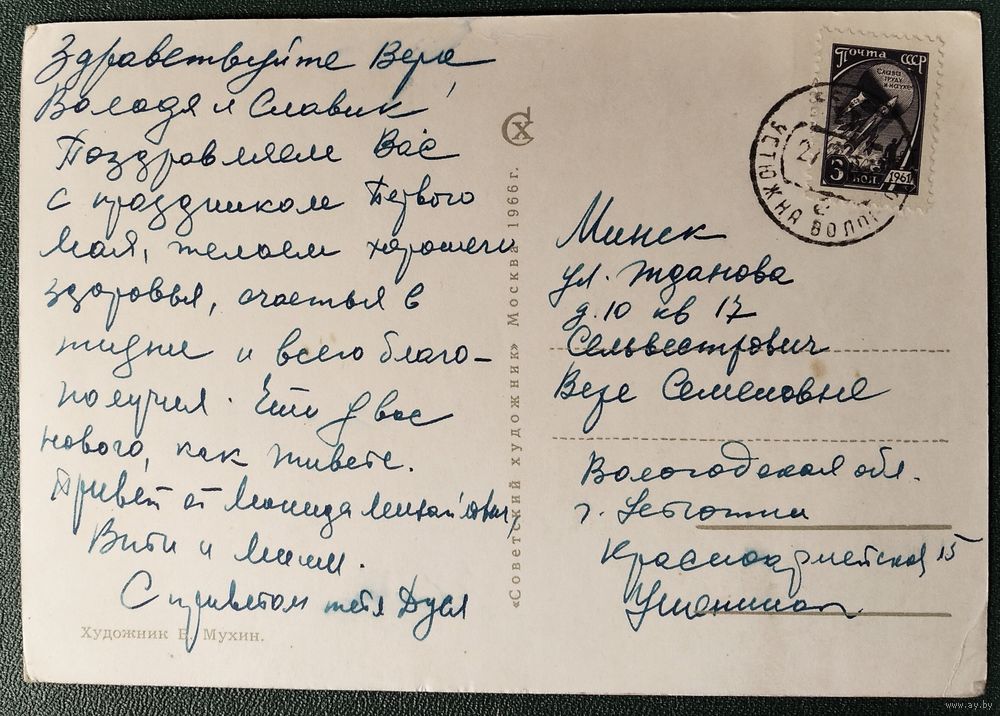 Здравствуйте Вера,
Володя и Славик
Поздравляем Вас
с праздником Первого
мая, желаем хорошего
здоровья, счастья в
жизни и всего благо-
получия. Что у вас
нового, как живете.
Привет от Леонида Михайловича,
Вити и Миши.
С приветом тетя Дуся
Художник Е. Мухин.
СХ
«Советский художник» Москва 1966 г.
Почта СССР
Слава
труду
и науке
6
коп
1961
УСТЮЖНА ВОЛОГОД
27
Минск
ул. Жданова
д. 10 кв 17
Сельвестрович
Вере Семеновне
Вологодская обл.
г. Устюжна
Красноармейская 15
www.ay.by